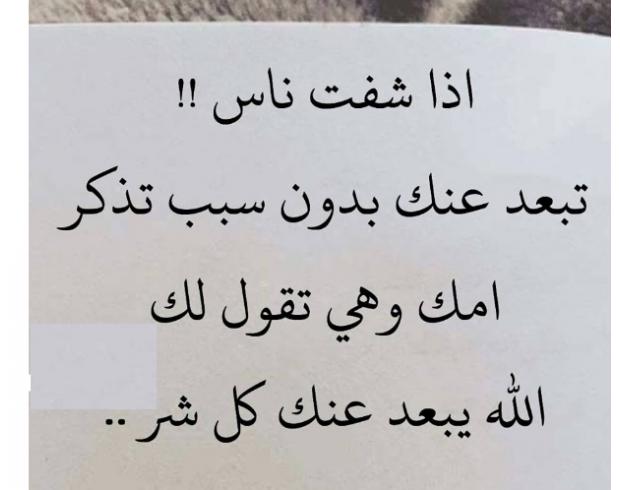 اذا شفت ناس !!
تبعد عنك بدون سبب تذكر
امك وهي تقول لك
الله يبعد عنك كل شر ..